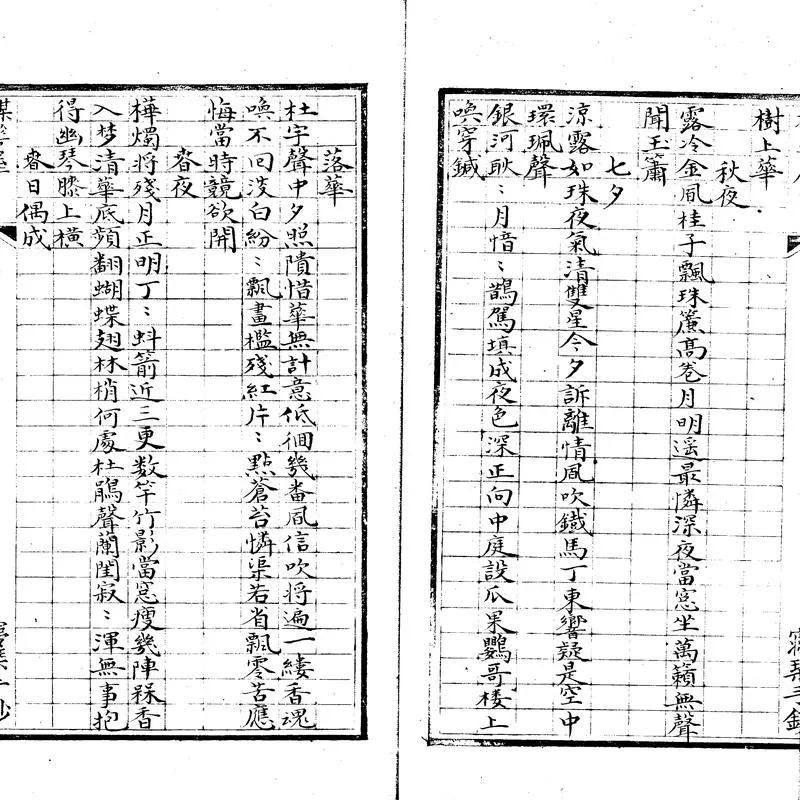 樹上華
秋夜
露冷金凮桂子飄珠簾高卷月明遥最憐深夜當窓坐萬籟無聲
聞玉簫
七夕
涼露如珠夜氣清雙星今夕訴離情凮吹鐵馬丁東響疑是空中
環珮聲
銀河耿〻月愔〻鵲駕填成夜色深正向中庭設瓜果鸚哥楼上
喚穿鍼
落華
杜宇聲中夕照隤惜華無計意低徊幾番凮信吹将遍一縷香魂
喚不回淡白紛〻飄畫檻殘紅片〻點蒼苔憐渠若省飄零苦應
悔當時競欲開
春夜
樺燭将殘月正明丁〻蚪箭近三更数竿竹影當窓瘦幾陣槑香
入梦清華底頻翻蝴蝶翅林梢何處杜鵑聲蘭閨寂〻渾無事抱
得幽琴膝上横
春日偶成